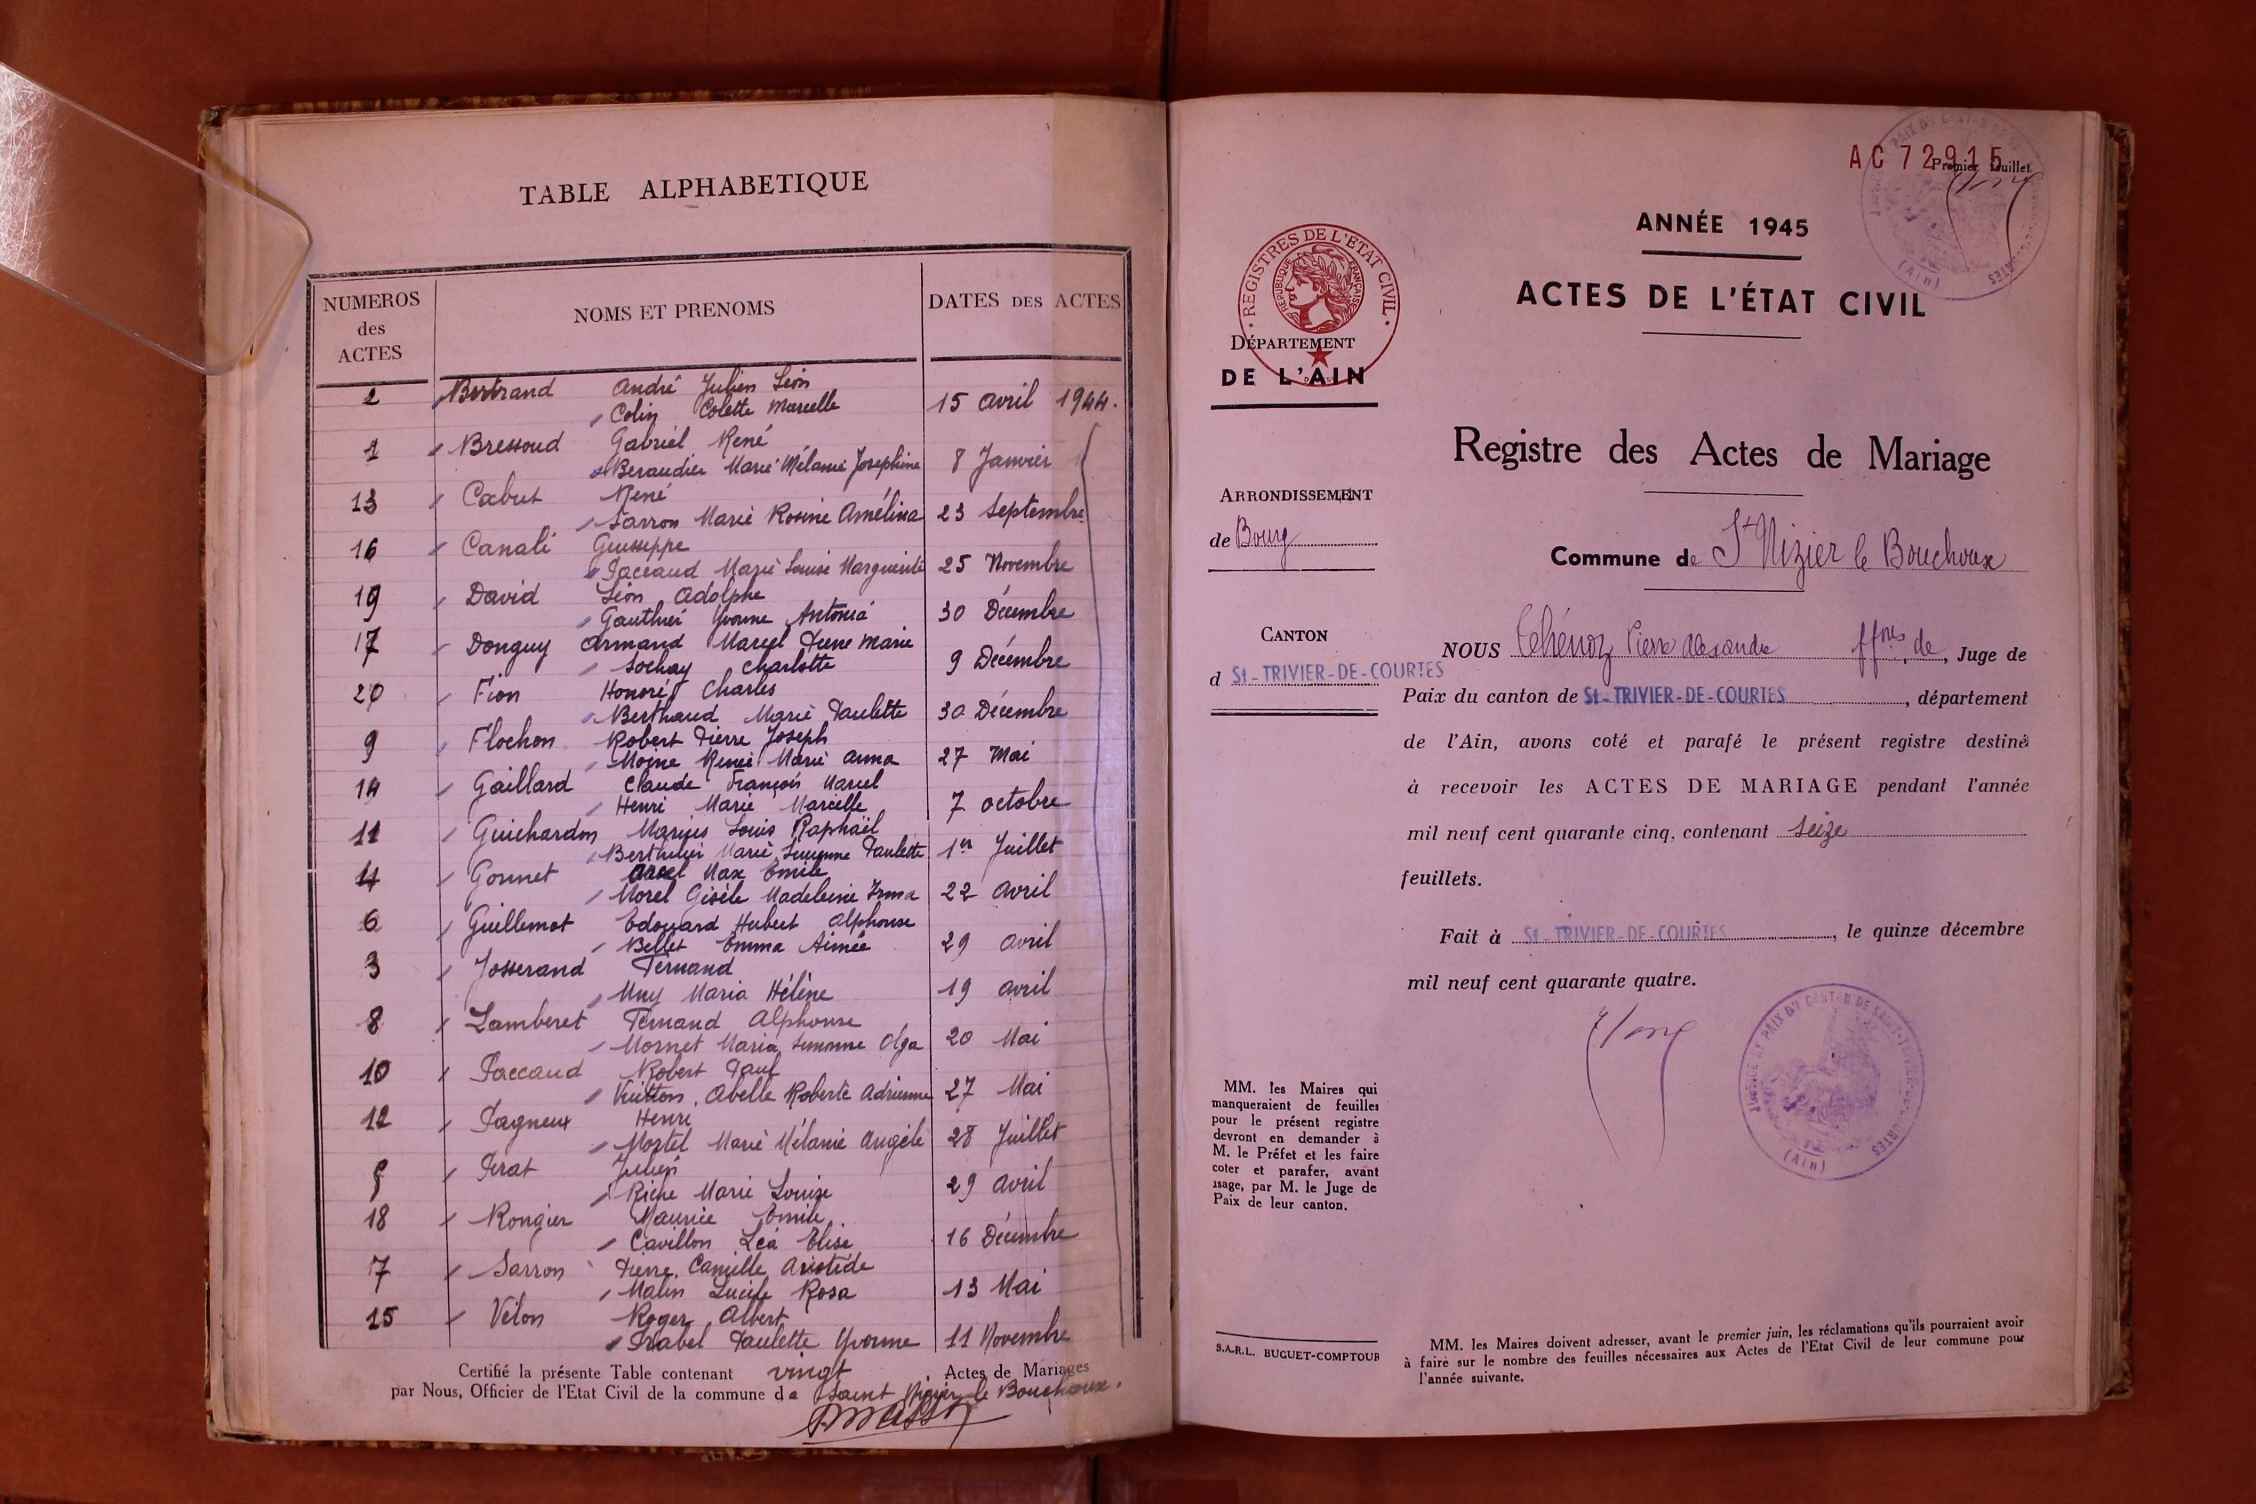 TABLE ALPHABETIQUE
NUMEROS des ACTES
NOMS ET PRENOMS
DATES DES ACTES
2 Bertrand André Julien Léon
Colin Colette Marcelle 15 avril 1944.
1 Bressoud Gabriel René
Beraudier Marie Mélanie Joséphine 8 Janvier
13 Cabut René
Sarron Marie Rosine Amélina 23 Septembre
16 Canali Giuseppe
Paccaud Marie Louise Marguerite 25 Novembre
19 David Léon Adolphe
Gauthier Yvonne Antonia 30 Décembre
17 Donguy Armand Marcel Pierre Marie
Sochay Charlotte 9 Décembre
20 Fion Honoré Charles
Berthaud Marie Paulette 30 Décembre
9 Flochon Robert Pierre Joseph
Moine Renée Marie Anna 27 Mai
14 Gaillard Claude François Marcel
Henri Marie Marcelle 7 octobre
11 Guichardon Marius Louis Raphaël
Berthelier Marie Suzanne Paulette 1er Juillet
4 Gonnet Max Emile
Morel Gisèle Madeleine Irma 22 avril
6 Guillemot Edouard Hubert Alphonse
Bellet Emma Aimée 29 avril
3 Josserand Fernand
Muy Maria Hélène 19 avril
8 Lamberet Fernand Alphonse
Mornet Maria Simonne Olga 20 Mai
10 Paccaud Robert Paul
Vuitton Abelle Roberte Adrienne 27 Mai
12 Pagneux Henri
Mortel Marie Mélanie Angèle 28 Juillet
5 Perat Julien
Riche Marie Louise 29 avril
18 Rongier Maurice Emile
Cavillon Léa Elise 16 Décembre
7 Sarron Pierre Camille Aristide
Malin Lucile Rosa 13 Mai
15 Velon Roger Albert
Isabel Paulette Yvonne 11 Novembre
Certifié la présente Table contenant vingt Actes de Mariages
par Nous, Officier de l'Etat Civil de la commune de Saint Nizier le Bouchoux.
AC 72915
Premier feuillet
ANNÉE 1945
ACTES DE L'ÉTAT CIVIL
REGISTRES DE L'ETAT CIVIL
REPUBLIQUE FRANÇAISE
DÉPARTEMENT
DE L'AIN
Registre des Actes de Mariage
ARRONDISSEMENT
de Bourg
Commune de St Nizier le Bouchoux
CANTON
d St-TRIVIER-DE-COURTES
NOUS Chénoz Pierre Alexandre ffons de, Juge de
Paix du canton de St-TRIVIER-DE-COURTES, département
de l'Ain, avons coté et parafé le présent registre destiné
à recevoir les ACTES DE MARIAGE pendant l'année
mil neuf cent quarante cinq, contenant seize
feuillets.
Fait à St-TRIVIER-DE-COURTES, le quinze décembre
mil neuf cent quarante quatre.
JUSTICE DE PAIX DU CANTON DE SAINT-TRIVIER-DE-COURTES
(Ain)
MM. les Maires qui
manqueraient de feuilles
pour le présent registre
devront en demander à
M. le Préfet et les faire
coter et parafer, avant
usage, par M. le Juge de
Paix de leur canton.
S.A.R.L. BUGUET-COMPTOUR
MM. les Maires doivent adresser, avant le premier juin, les réclamations qu'ils pourraient avoir
à faire sur le nombre des feuilles nécessaires aux Actes de l'Etat Civil de leur commune pour
l'année suivante.